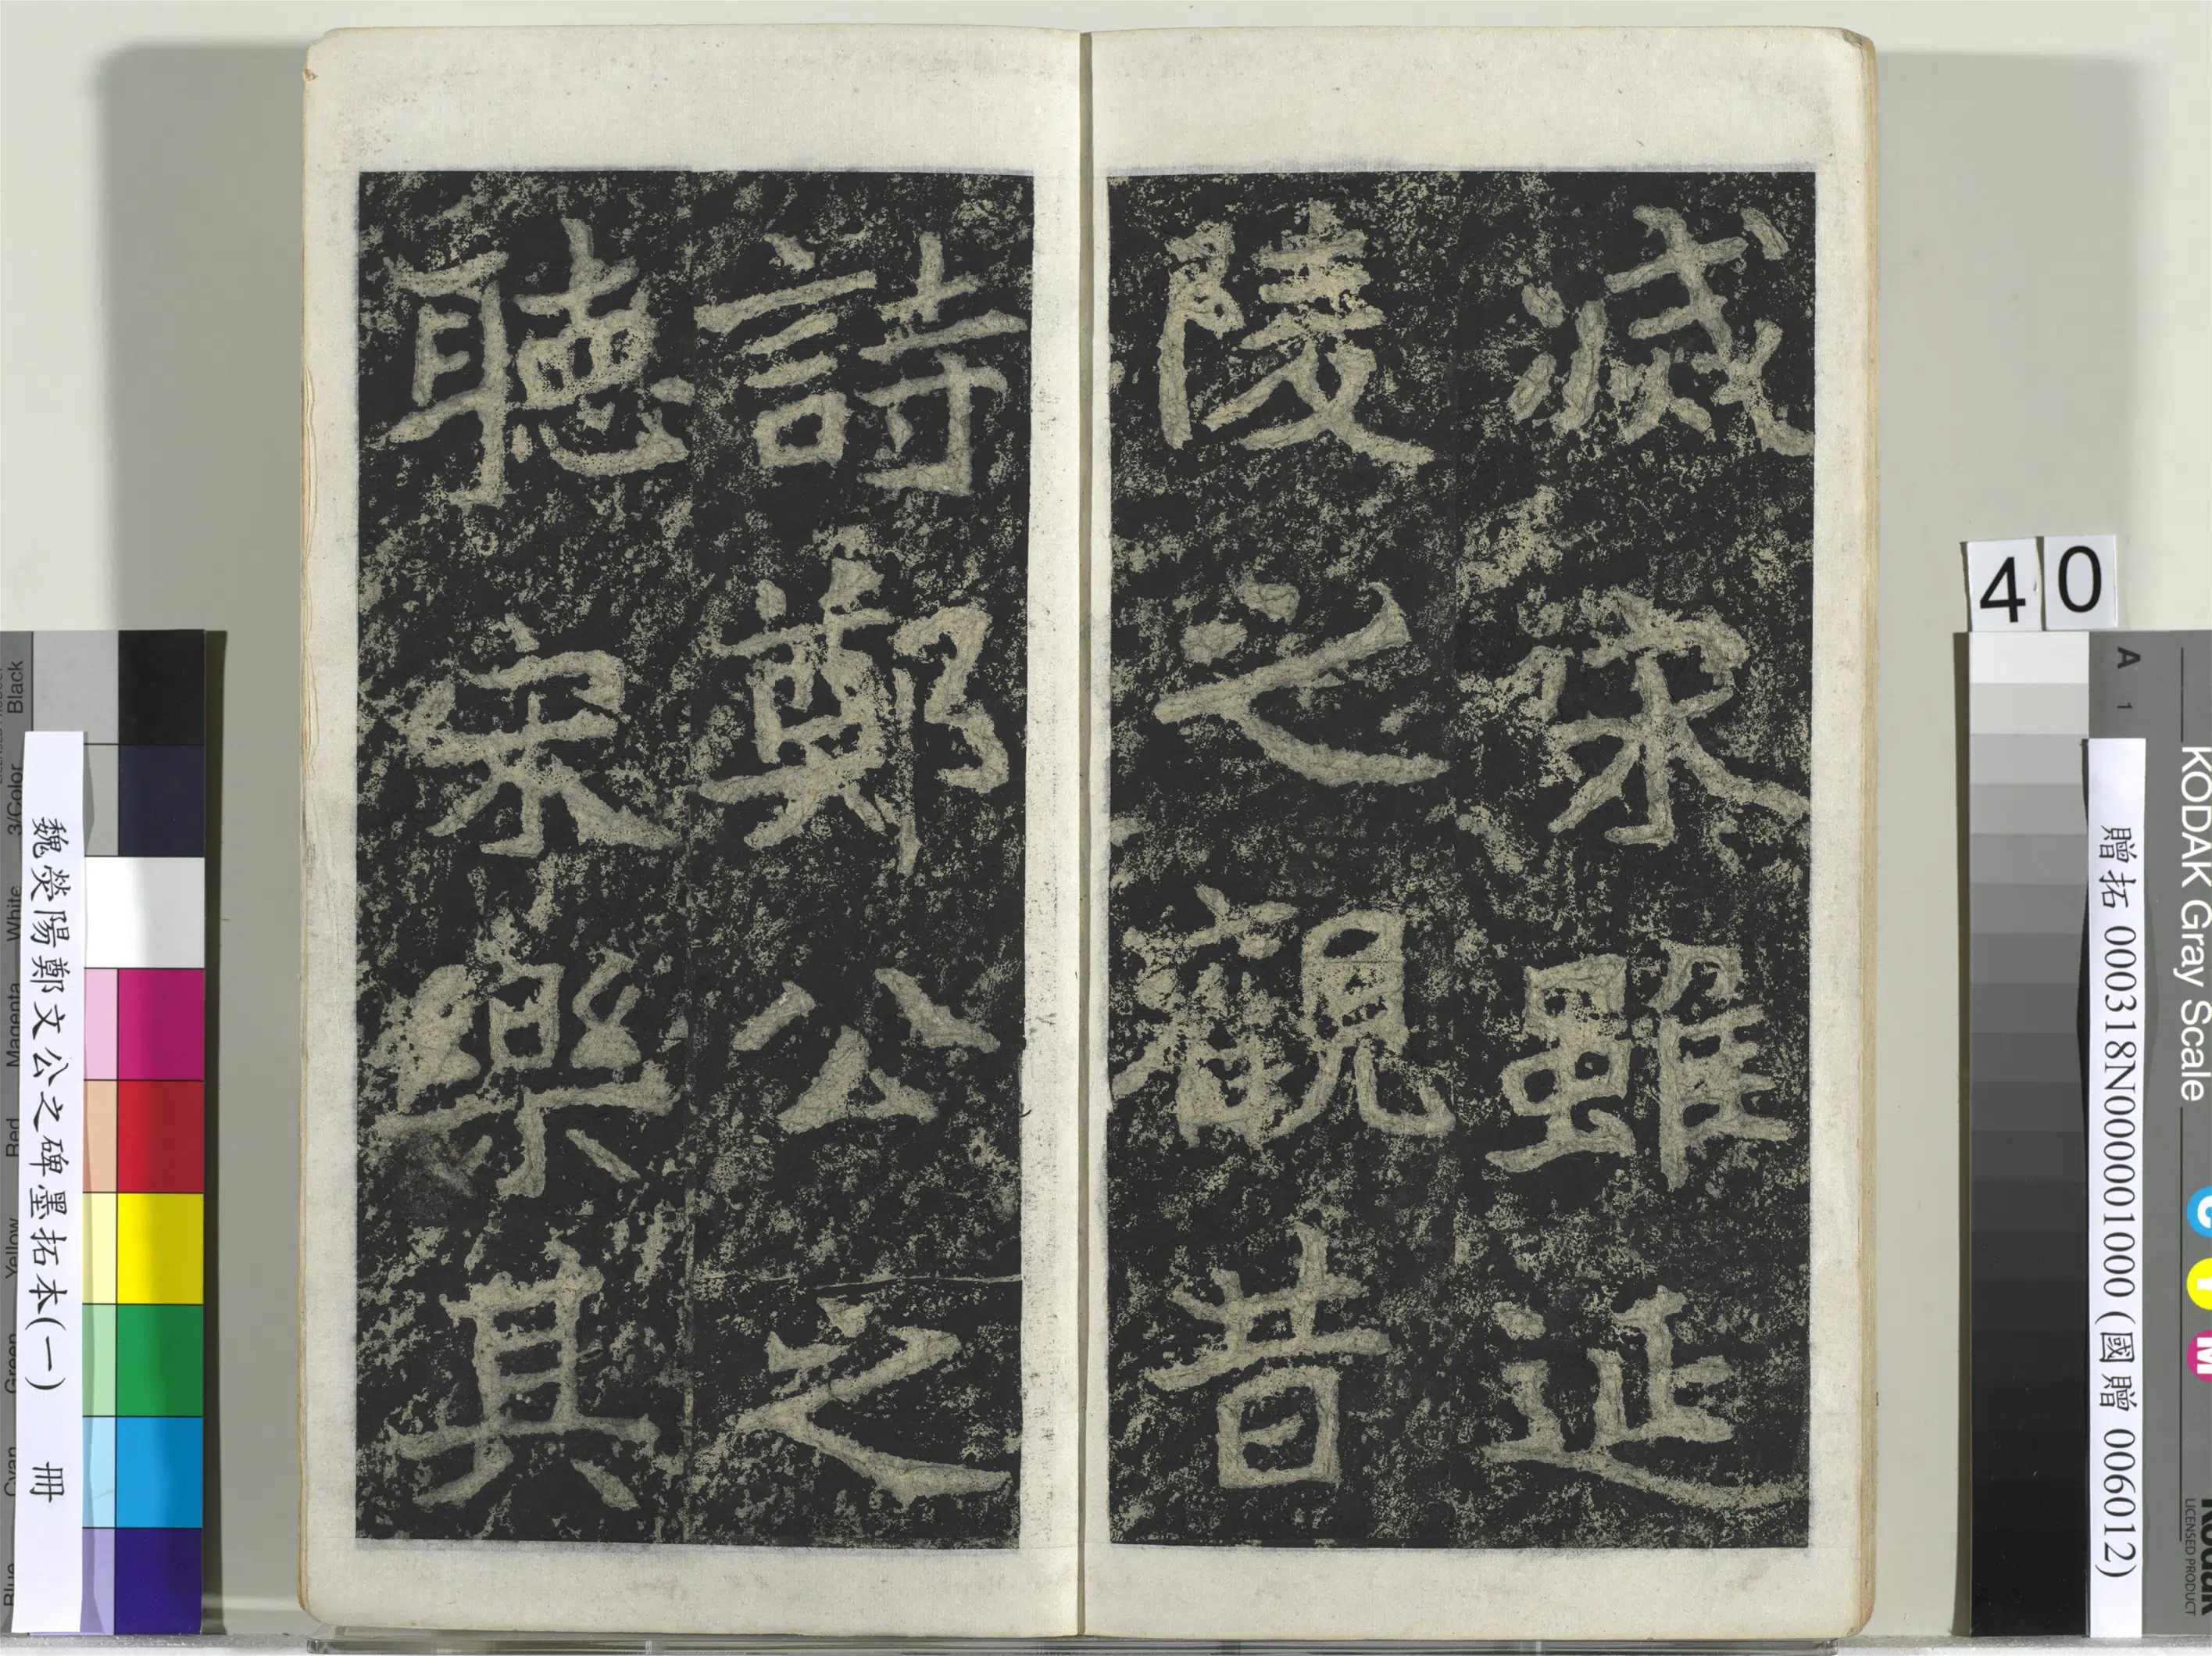 滅宋雖延
陵之觀昔
詩鄭公之
聽宋樂其
40
A 1
KODAK Gray Scale
C
Y
M
Kodak
LICENSED PRODUCT
贈拓 000318N000001000 (國贈 006012)
魏滎陽鄭文公之碑墨拓本(一) 冊
Blue
Cyan
Green
Yellow
Red
Magenta
White
3/Color
Black